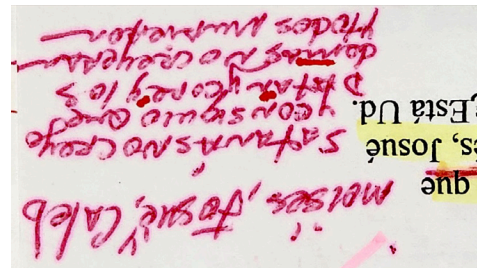 que
és, Josué
¿Está Ud.
moises, Josué, y Caleb
SATANÁS NO CREYO
Y CONSIGUIO QUE
DATAN Y CORE Y los
demas No creyeran
y todos murieron